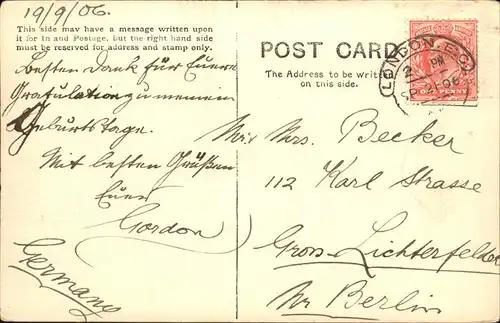 19/9/06.
This side may have a message written upon
it for In and Postage, but the right hand side
must be reserved for address and stamp only.
Besten Dank für Euern
Gratulation zu meinem
Geburtstage.
Mit besten Grüßen
Euer
Gordon
Germany
POST CARD
The Address to be written
on this side.
LONDON. E.C.
2 PM
ONE PENNY
Mr. Mrs. Becker
112 Karl Strasse
Gross-Lichterfelde
Nr Berlin